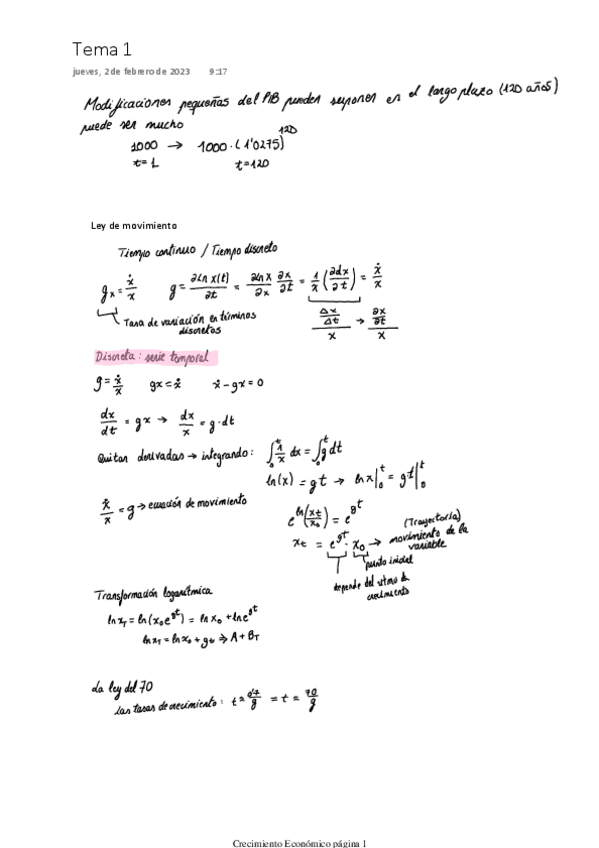 Tema 1
jueves, 2 de febrero de 2023 9:17
Modificaciones pequeñas del PIB pueden suponer en el largo plazo (120 años)
puede ser mucho
1000 → 1000·(1'0275)^120
t=1 t=120
Ley de movimiento
Tiempo continuo / Tiempo discreto
gx = ẋ/x g = ∂Ln x(t)/∂t = ∂Ln x/∂x ∂x/∂t = 1/x (∂dx/∂t) = ẋ/x
Tasa de variación en términos discretos
Δx/Δt / x → ∂x/∂t / x
Discreta: serie temporal
g = ẋ/x gx = ẋ ẋ - gx = 0
dx/dt = gx → dx/x = g·dt
Quitan derivadas → integrando: ∫₀ᵗ 1/x dx = ∫₀ᵗ g dt
ln(x) = gt → ln x|₀ᵗ = gt|₀ᵗ
ẋ/x = g → ecuación de movimiento
e^ln(xt/x0) = e^gt
xt = e^gt · x0 → (Trayectoria) movimiento de la variable
punto inicial
depende del ritmo de crecimiento
Transformación logarítmica
ln xT = ln(x0 e^gt) = ln x0 + ln e^gt
ln xT = ln x0 + gt ⇒ A + BT
La ley del 70
Las tasas de crecimiento: t = 0'7/g = t = 70/g
Crecimiento Económico página 1